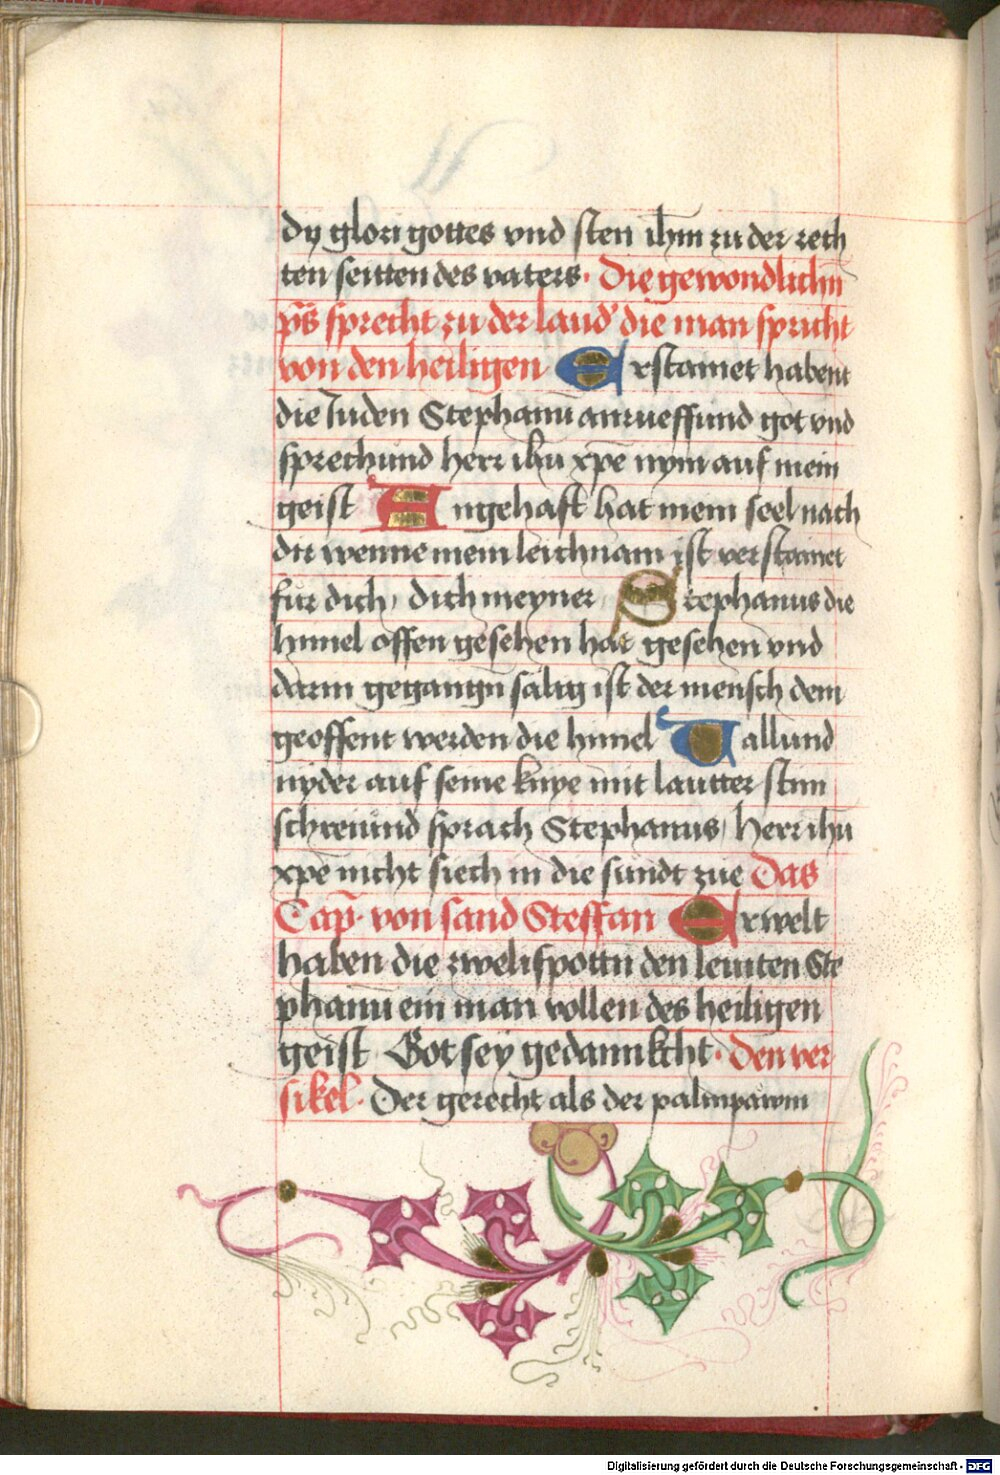 dy glori gottes vnd sten ihm zu der rech
ten seitten des vaters. Die gewondlichn
ps sprecht zu der laud' die man spricht
von den heiligen Erstainet habent
die Juden Stephanū anrueffund got vnd
sprechund herr ihu xpē nym auf mein
geist Angehaft hat mein seel nach
dir wenne mein leichnam ist verstainet
für dich, dich meyner Stephanus die
himel offen gesehen hat gesehen vnd
darin gegangn sälig ist der mensch dem
geoffent werden die himel Vallund
nyder auf seine knye mit lautter stim
schreiund sprach Stephanus, herr ihu
xpē nicht siech in die sündt zue Das
Cap. von sand Steffan Erwelt
haben die zwelifpottn den leuiten Ste
phanū ein man vollen des heiligen
geist Got sey gedannkcht. Den ver
sikel. Der gerecht als der palmpawm
Digitalisierung gefördert durch die Deutsche Forschungsgemeinschaft - DFG